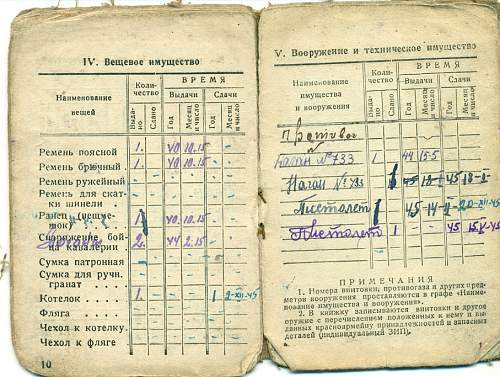 IV. Вещевое имущество
Наименование
вещей
Коли-
чество
Выда-
но
Сдано
ВРЕМЯ
Выдачи
Сдачи
Год
Месяц
и число
Год
Месяц
и число
Ремень поясной 1. 40 10.15
Ремень брючный 1. 40 10.15
Ремень ружейный
Ремни для скат-
ки шинели
Ранец (вещме-
шок) 1 40 10.15
Снаряжение бой-
ца кавалерии 2. 44 2.15
Сумка патронная
Сумка для ручн.
гранат
Котелок 1. 1 2-XII-45
Фляга
Чехол к котелку
Чехол к фляге
10
V. Вооружение и техническое имущество
Наименование
имущества
и вооружения
Коли-
чество
Выда-
но
Сдано
ВРЕМЯ
Выдачи
Сдачи
Год
Месяц
и число
Год
Месяц
и число
Наган № 733 1 44 15-5
Наган № 733 45 18-I 45 18-II
Пистолет 1 45 14-II 20-XII-45
Пистолет 1 45
ПРИМЕЧАНИЯ
1. Номера винтовки, противогаза и других пред-
метов вооружения проставляются в графе «Наиме-
нование имущества и вооружения».
2. В книжку записываются винтовки и другое
оружие с перечислением положенных к нему и вы-
данных красноармейцу принадлежностей и запасных
деталей (индивидуальный ЗИП).